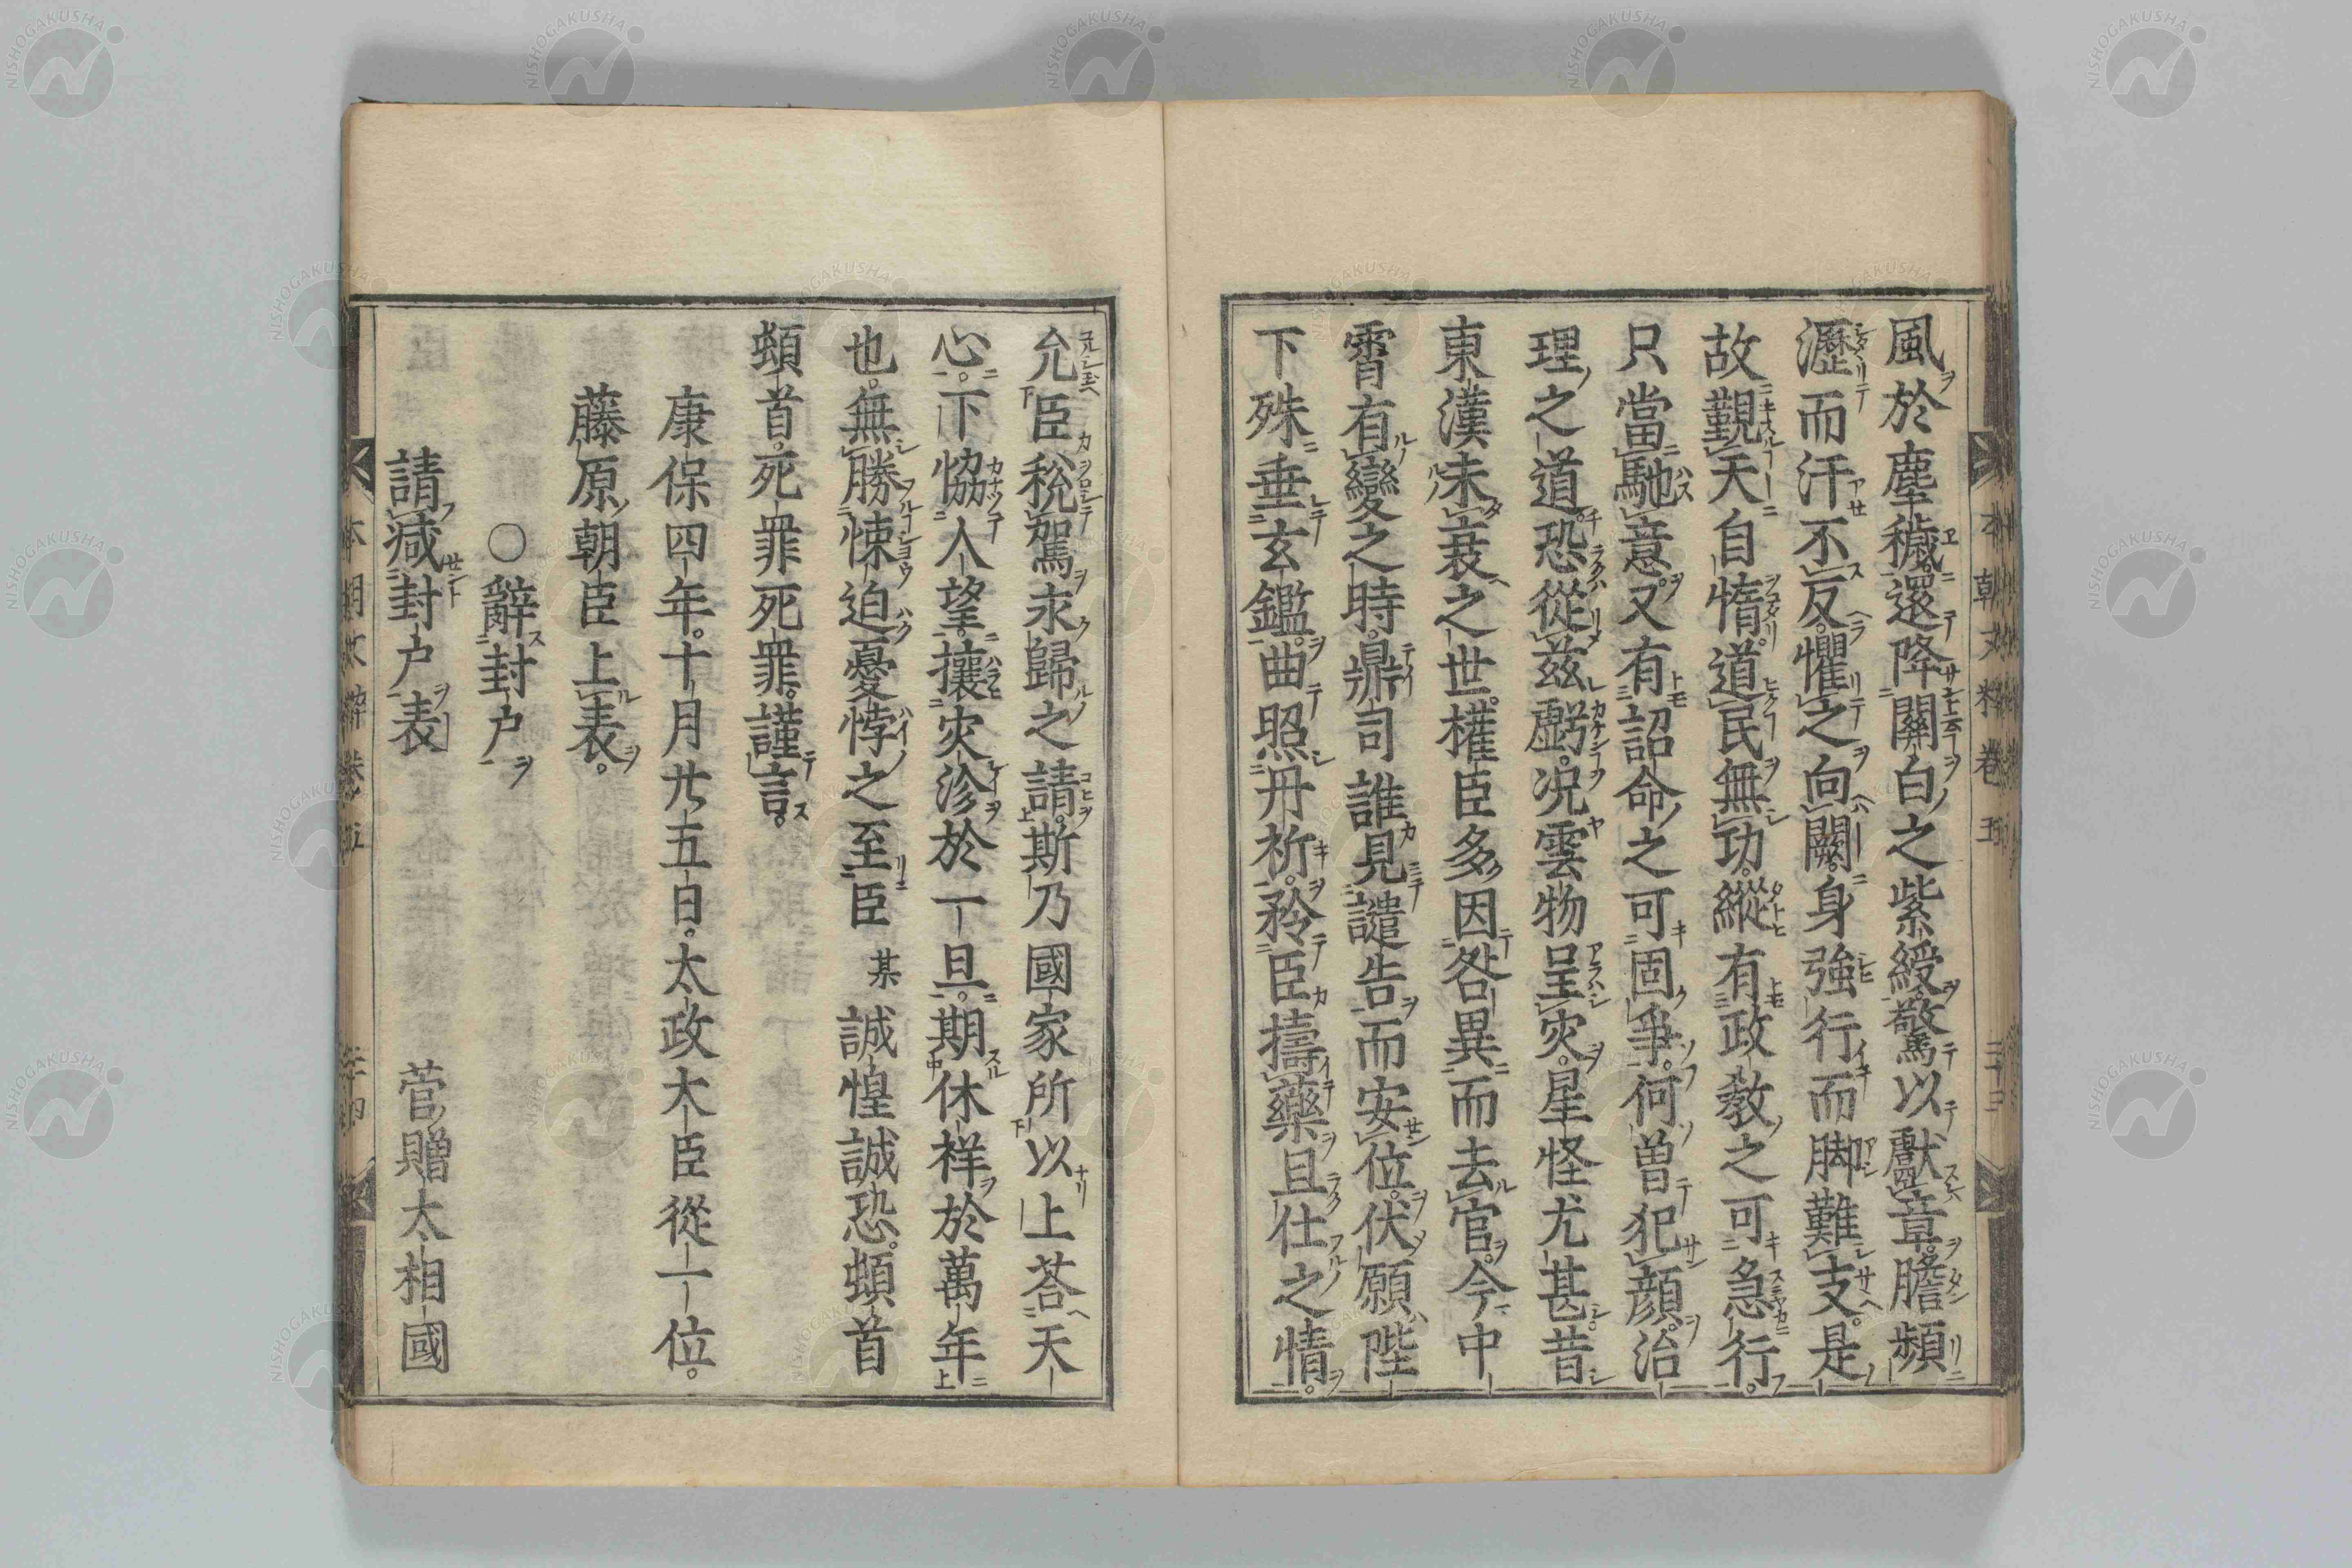 風於塵穢還降關白之紫綬驚以獻章膽頻
瀝而汗不反懼之向闕身強行而脚難支是
故觀天自惰道民無功縱有政教之可急行
只當馳意又有詔命之可固爭何曽犯顔治
理之道恐從茲虧況雲物呈灾星怪尤甚昔
東漢未衰之世權臣多因咎異而去官今中
霄有變之時鼎司誰見譴告而安位伏願陛
下殊垂玄鑑曲照丹祈矜臣擣藥且仕之情
允臣稅駕求歸之請斯乃國家所以上荅天
心下恊人望攘灾沴於一旦期休祥於萬年
也無勝悚迫憂悖之至臣某誠惶誠恐頓首
頓首死罪死罪謹言
康保四年十月廿五日太政大臣從一位
藤原朝臣上表
○辭封户
請减封户表 菅贈太相國
本朝文粋卷五
本朝文粹卷五
NISHOGAKUSHA